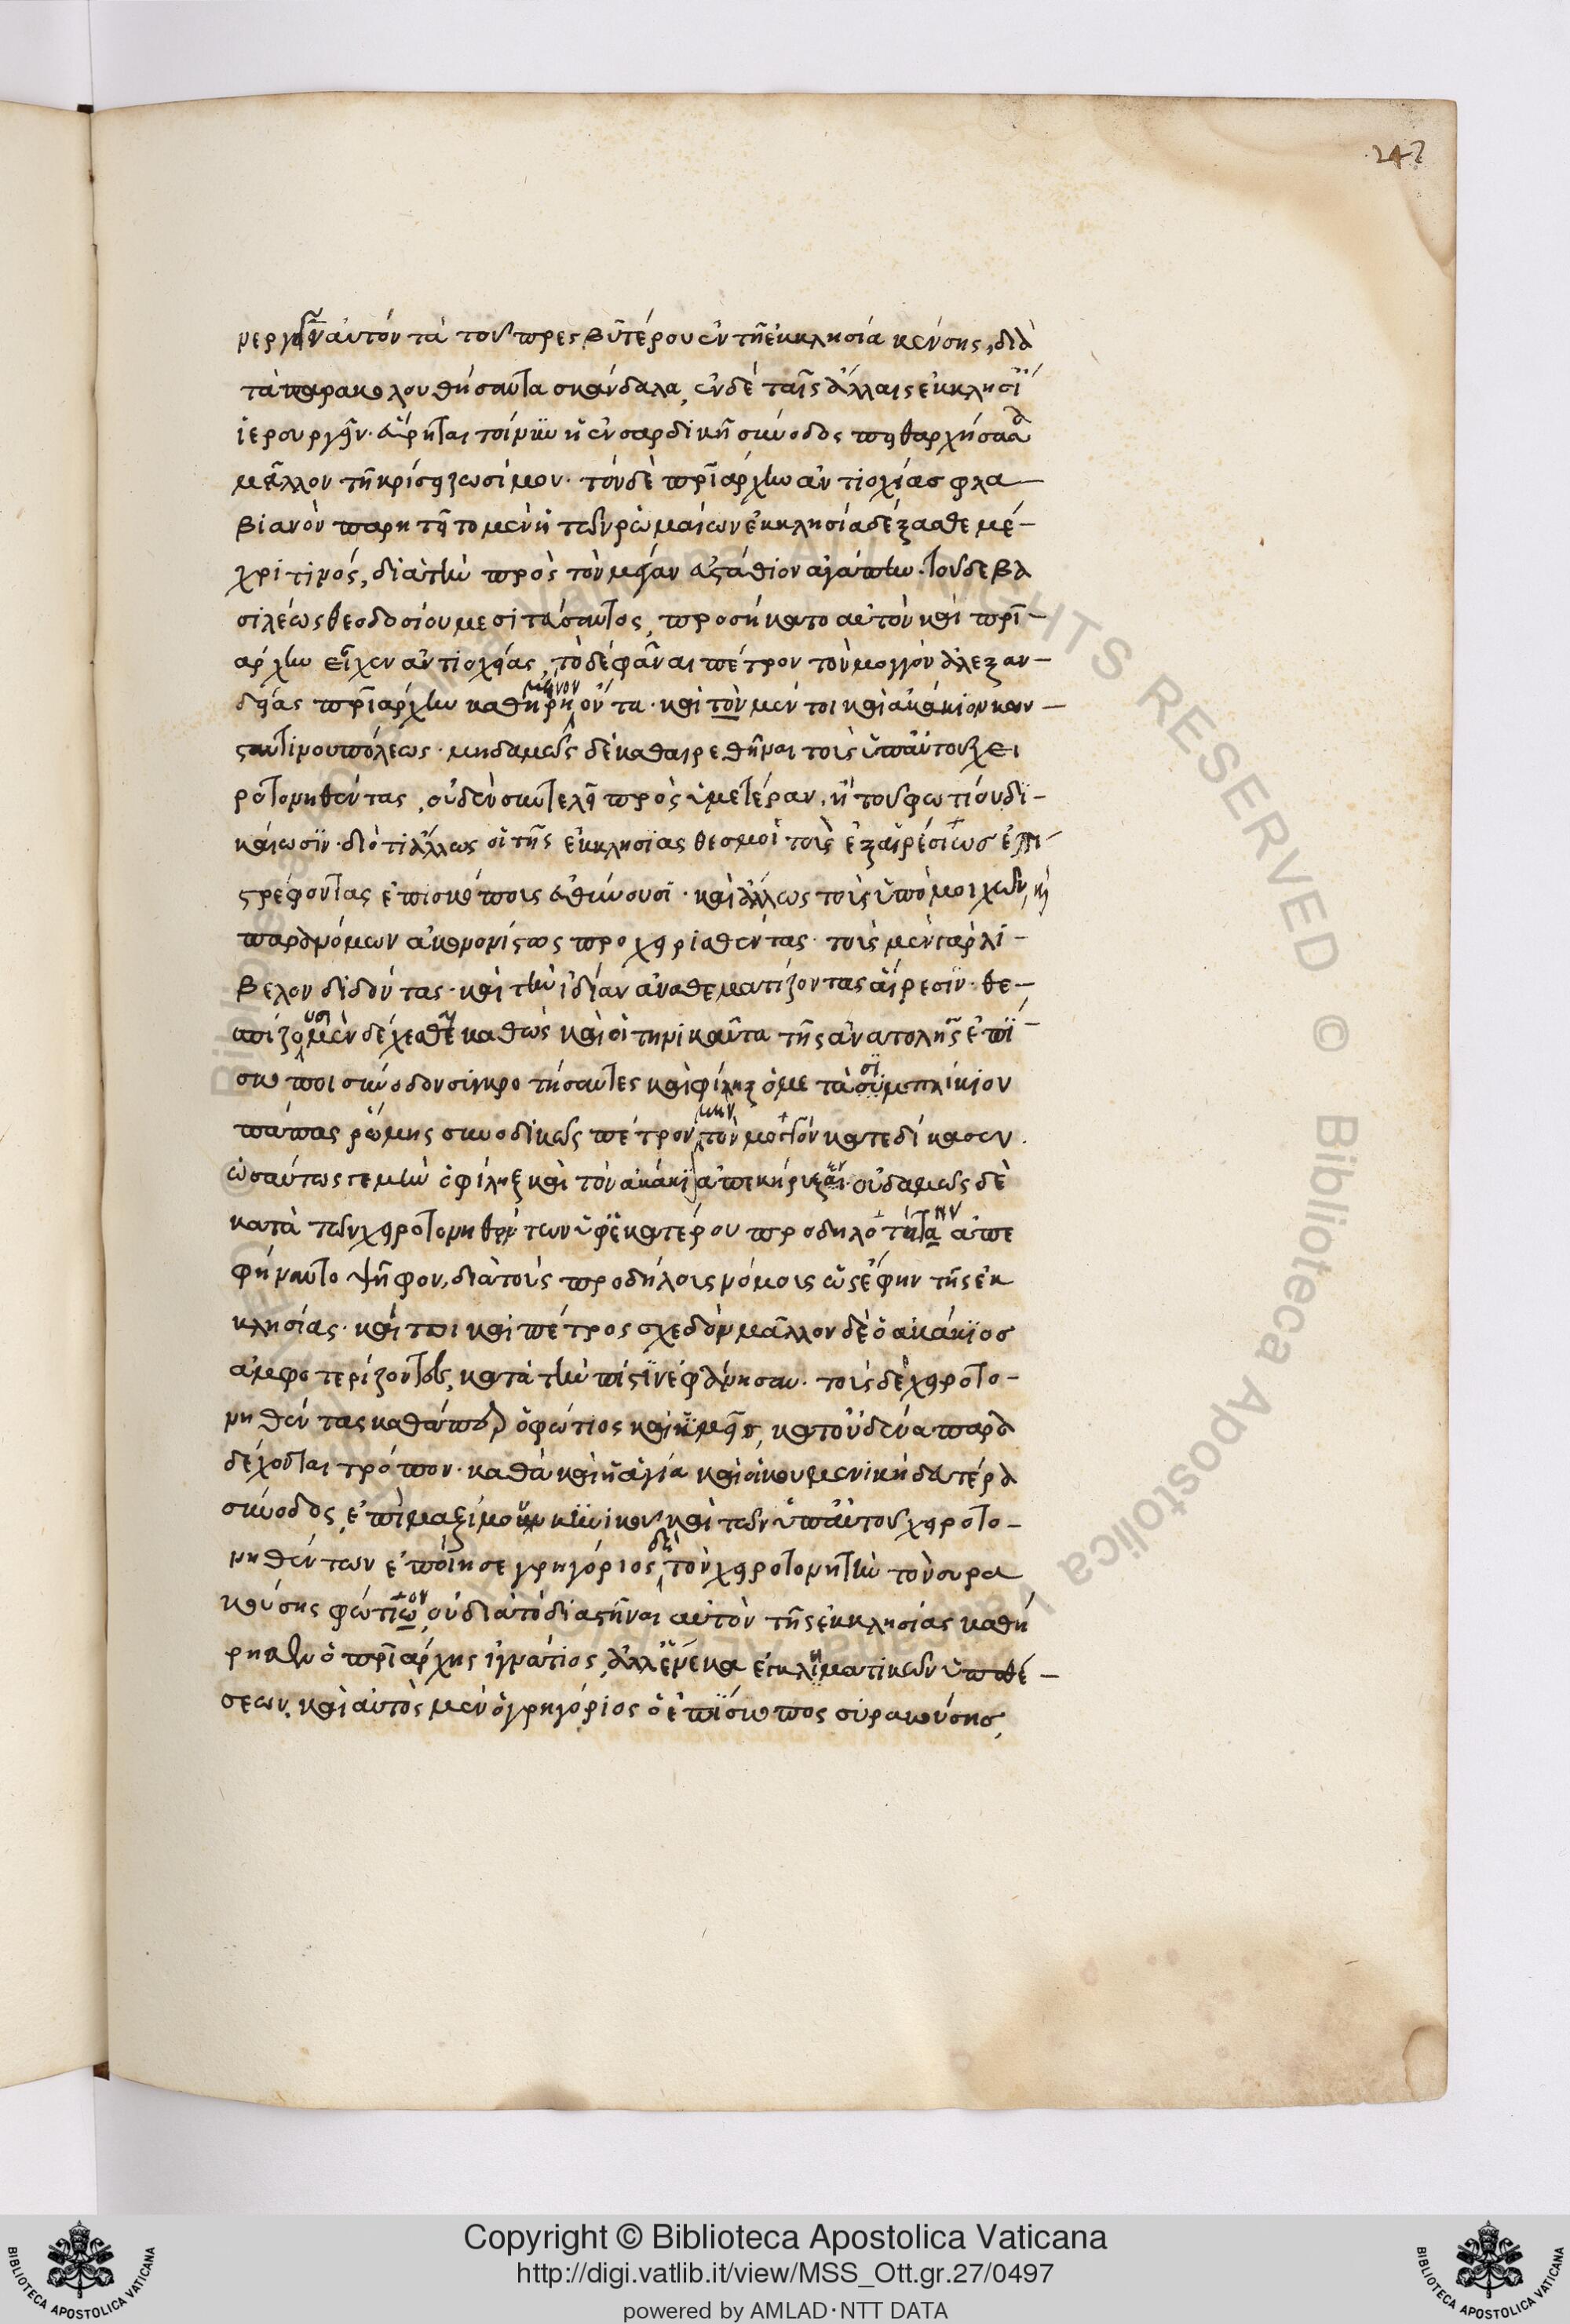 247
νεργεῖν αὐτόν τὰ τοῦ πρεσβυτέρου ἐν τῆ ἐκκλησία κενσης, διὰ
τὰ παρακολουθήσαντα σκάνδαλα, ἐν δὲ ταῖς ἄλλαις ἐκκλησί
ἱερουργεῖν. εἴρηται τοίνυν ἡ ἐν σαρδικῆ σύνοδος πειθαρχήσασα
μᾶλλον τῆ κρίσει ζωσίμου. τὸν δὲ πριάρχην ἀντιοχίας φλα
βιανὸν παρητεῖτο μὲν ἡ τῶν ῥωμαίων ἐκκλησία δέξασθε μέ-
χρι τινός, διὰ τὴν πρὸς τὸν μέγαν εὐστάθιον ἀγάπην. τοῦ δε βα
σιλέως θεοδοσίου μεσιτεύσαντος, προσήκατο αὐτὸν καὶ πρι-
άρχην εἶχεν ἀντιοχείας, τὸ δὲ φᾶναι πέτρον τὸν μογγὸν ἀλεξαν-
δρείας πριάρχην καθηρημένον ὄντα. καὶ τὸν μέν τοι καὶ ἀκάκιον κων-
σταντινουπόλεως. μηδαμῶς δὲ καθαιρεθῆναι τοὺς ὑπ' αὐτοῦ χει
ροτονηθέντας, οὐδὲν συντελεῖ πρὸς ὑμετέραν, ἢ τοῦ φωτίου δι-
καίωσιν. διότι ἄλλως οἱ τῆς ἐκκλησίας θεσμοὶ τοὺς ἐξ αἱρέσεως ἐπι
στρέφοντας ἐπισκόπους εὐθύνουσι. καὶ ἄλλως τοὺς ὑπὸ μοιχῶν, κ
παρανόμων ἀκανονίστως προχειρισθέντας. τοὺς μὲν γὰρ λί-
βελον διδόντας. καὶ τὴν ἰδίαν ἀναθεματίζοντας αἵρεσιν. θε-
σπίζουσι μὲν δέχεσθαι καθὼς καὶ οἱ τηνικαῦτα τῆς ἀνατολῆς ἐπι
σκοποι σύνοδον συγκροτήσαντες καὶ φίληξ ὁ μετὰ σιμπλίκιον
πάπας ῥώμης συνοδικῶς πέτρον μὲν τὸν μογγὸν κατεδίκασεν.
ὡσαύτως τε μὴν ὁ φίληξ καὶ τὸν ἀκάκι ἀπεκήρυξεν. οὐδαμῶς δὲ
κατὰ τῶν χειροτονηθέντων ὑφ' ἑκατέρου προδηλοτάτην ἀπε
φήναντο ψῆφον, διὰ τοὺς προδήλους νόμους ὡς ἔφην τῆς ἐκ
κλησίας. καί τοι καὶ πέτρος σχεδὸν μᾶλλον δὲ ὁ ἀκάκιος
ἀμφοτερίζοντες, κατὰ τὴν πίστιν ἐφάνησαν. τοὺς δὲ χειροτο-
νηθέντας καθάπερ ὁ φώτιος καὶ ὑμεῖς, κατ' οὐδένα παρα
δέχονται τρόπον. καθὰ καὶ ἡ ἁγία καὶ οἰκουμενικὴ δευτέρα
σύνοδος, ἐπὶ μαξίμου κυνικοῦ καὶ τῶν ὑπ' αὐτοῦ χειροτο-
νηθέντων ἐποίησε γρηγόριος δὲ τὸν χειροτονητὴν τὸν συρα
κούσης φωτίου, οὐ διὰ τὸ διαστῆναι αὐτὸν τῆς ἐκκλησίας καθή
ρηκεν ὁ πριάρχης ἰγνάτιος, ἀλλ' ἕνεκα ἐγκληματικῶν ὑποθέ-
σεων. καὶ αὐτὸς μὲν ὁ γρηγόριος ὁ ἐπίσκοπος συρακούσης,
Copyright © Biblioteca Apostolica Vaticana
http://digi.vatlib.it/view/MSS_Ott.gr.27/0497
powered by AMLAD·NTT DATA